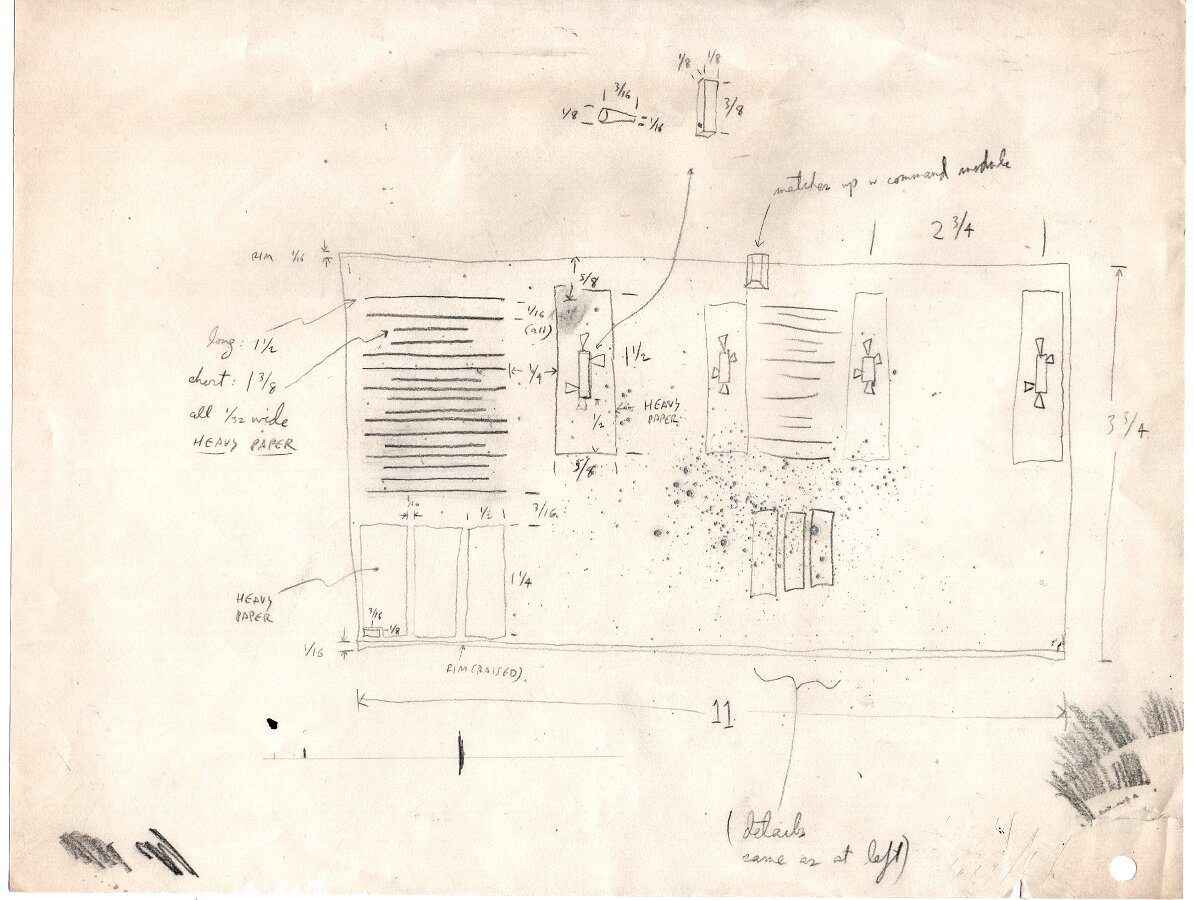 1/8 1/8
3/16
1/8
1/16
3/8
matches up w command module
2 3/4
RIM 1/16
5/8
1/16
(all)
long: 1 1/2
short: 1 3/8
all 1/32 wide
HEAVY PAPER
1/4
1 1/2
HEAVY
PAPER
1/2
5/8
3 3/4
1/16
1/2
3/16
1 1/4
HEAVY
PAPER
3/16
1/8
1/16
RIM (RAISED)
11
(details
same as at left)